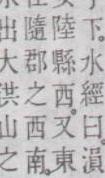 下水經曰溳
陸縣西又東
隨郡之西南
出大洪山之